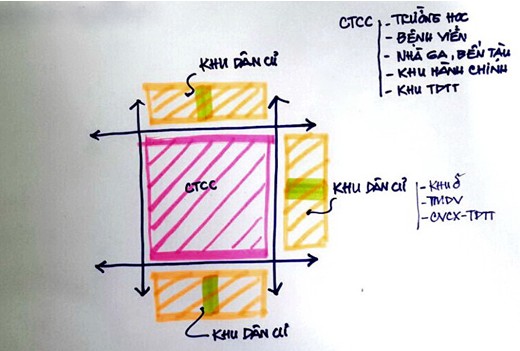 CTCC
- TRƯỜNG HỌC
- BỆNH VIỆN
- NHÀ GA, BẾN TÀU
- KHU HÀNH CHÍNH
- KHU TDTT
KHU DÂN CƯ
CTCC
KHU DÂN CƯ
- KHU Ở
- TMDV
- CVCX-TDTT
KHU DÂN CƯ